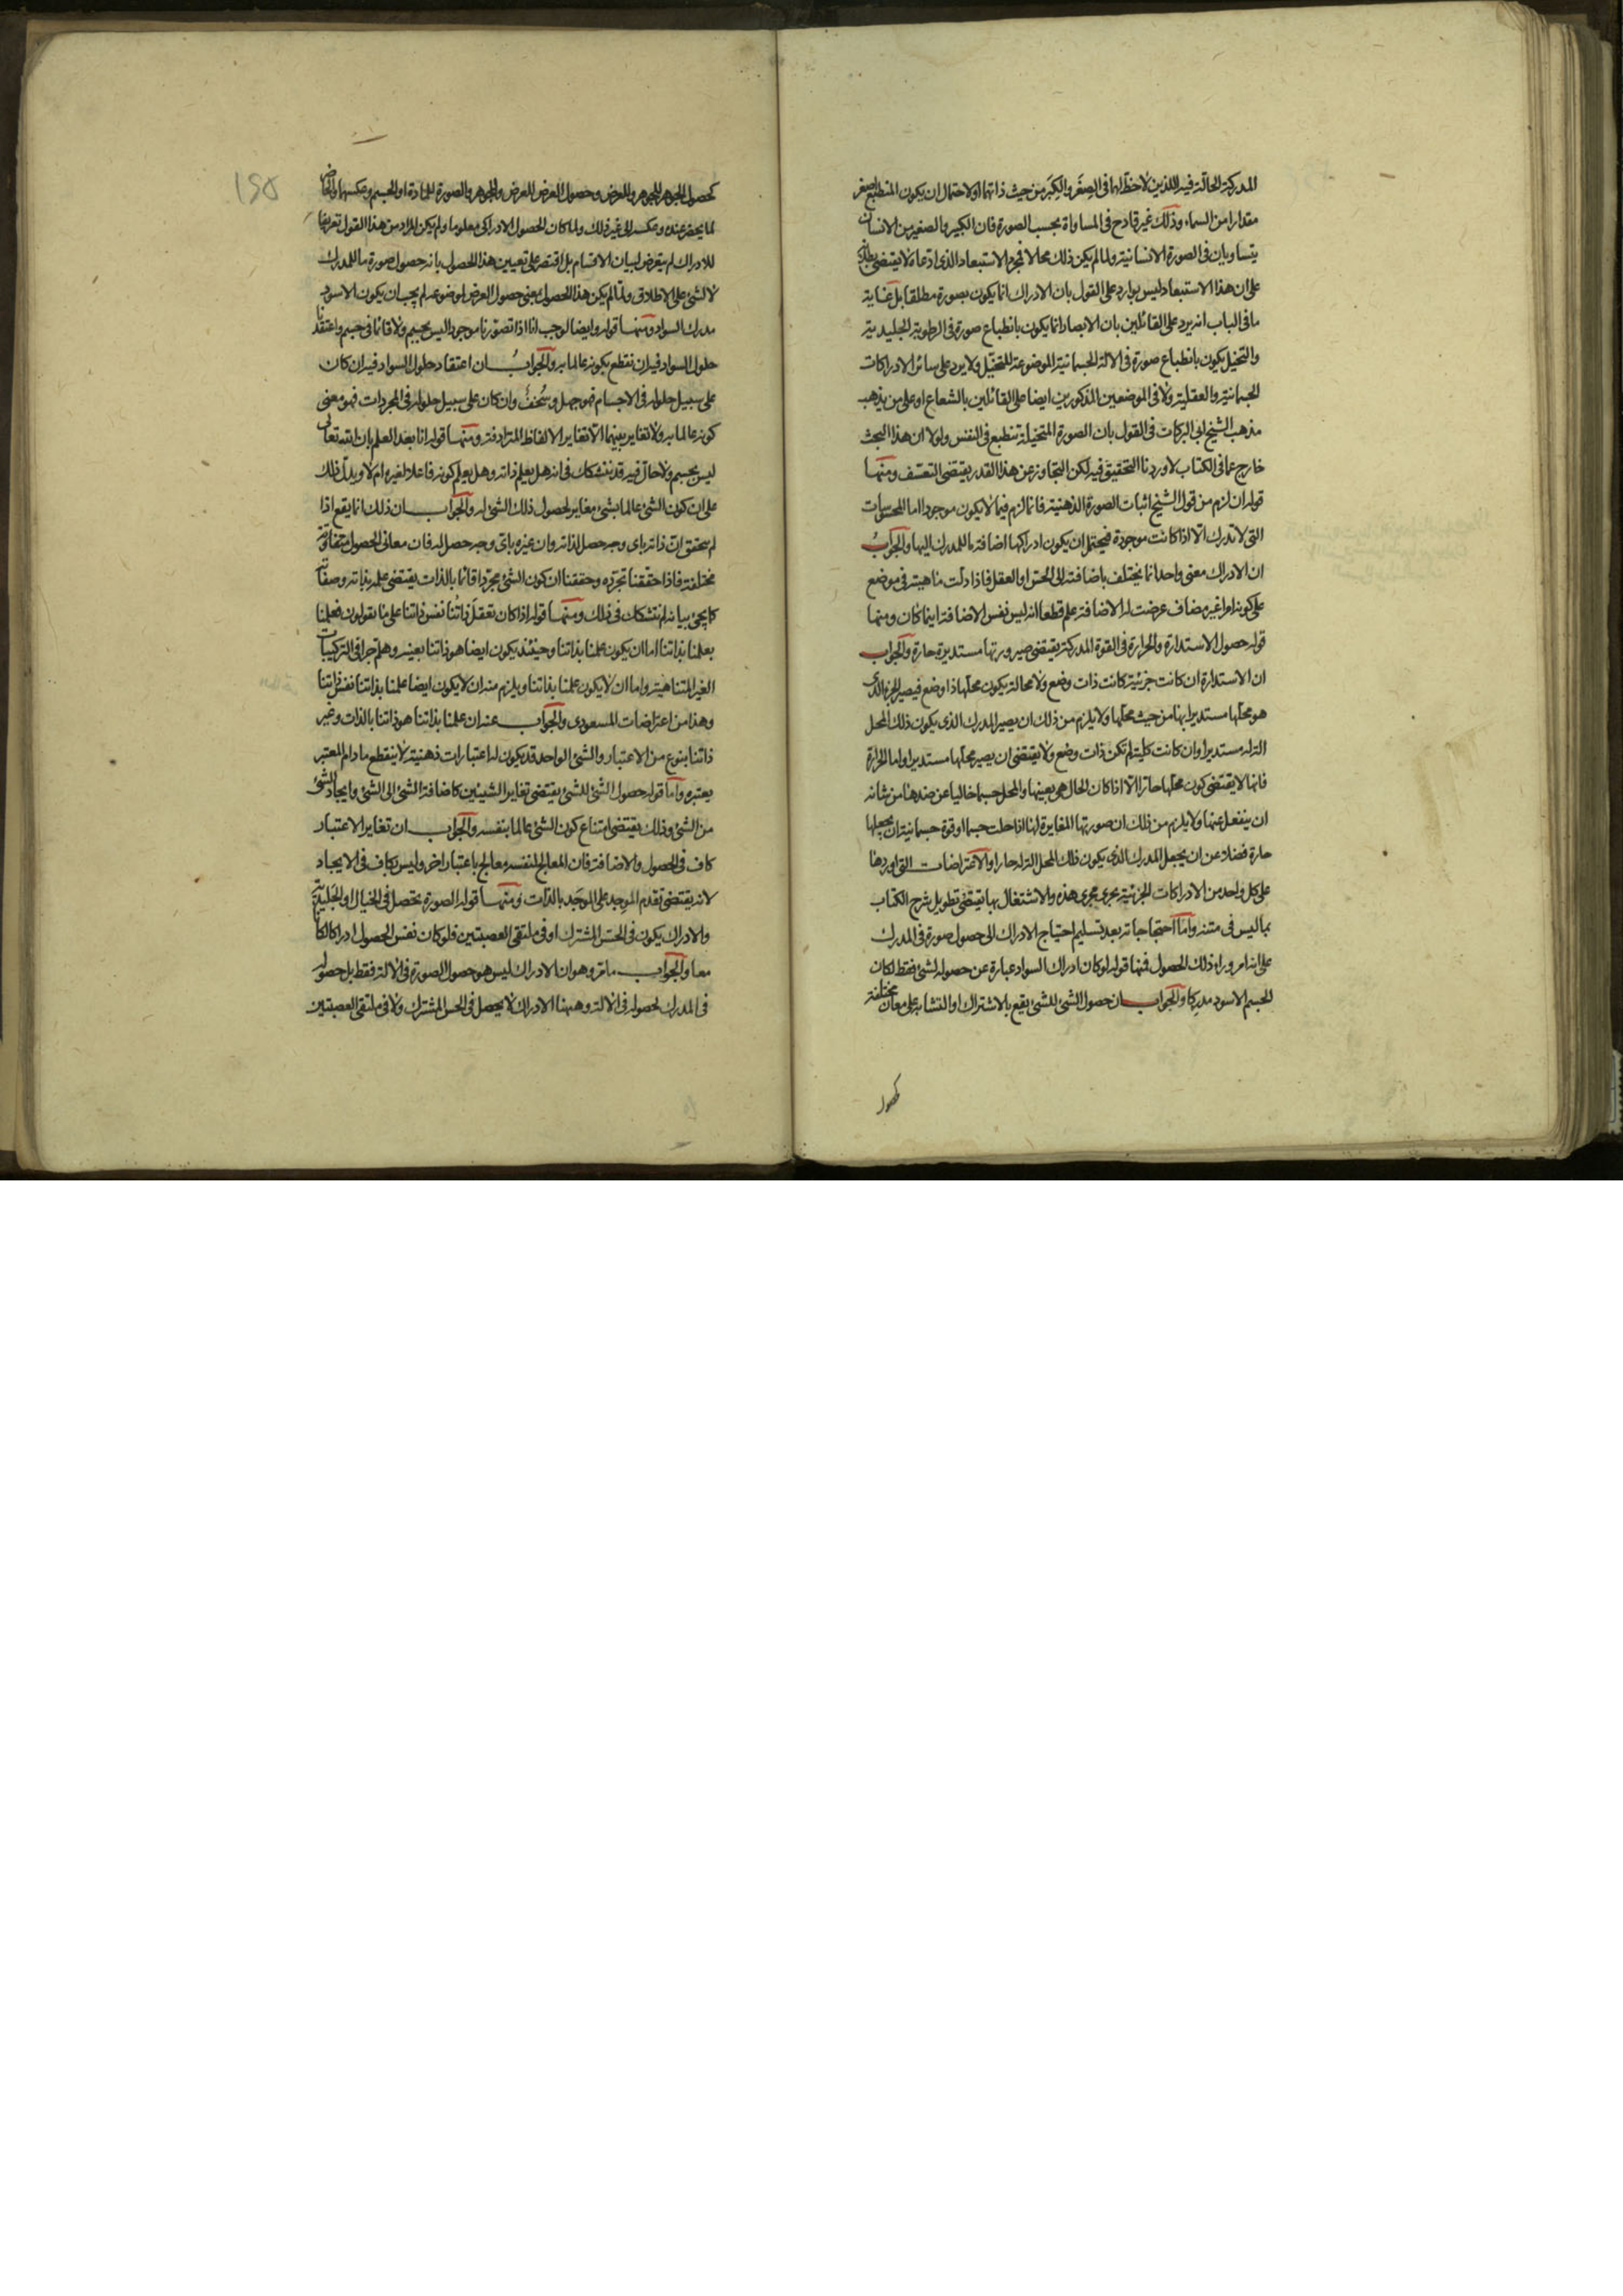 المدركة الحالّة فيه اللذين لا حظّ لهما فى الصِغَر والكِبَر من حيث ذاتهما او لاحتمال ان يكون المنطبع اصغر
مقدارا من السماء وذلك غير قادح فى المساواة بحسب الصورة فان الكبير والصغير من الانسان
يتساويان فى الصورة الانسانية ولما لم يكن ذلك محالا فمجرد الاستبعاد الذى ادعاه لا يقتضى بطلانه
على ان هذا الاستبعاد ليس بوارد على القول بان الادراك انما يكون بصورة مطلقا بل غاية
ما فى الباب انه يرد على القائلين بان الابصار انما يكون بانطباع صورة فى الرطوبة الجليدية
والتخيل يكون بانطباع صورة فى الالة الجسمانية الموضوعة للتخيّل ولا يرد على سائر الادراكات
الجسمانية والعقلية ولا فى الموضعين المذكورين ايضا على القائلين بالشعاع او على من يذهب
مذهب الشيخ ابى البركات فى القول بان الصورة المتخيلة تنطبع فى النفس ولولا ان هذا البحث
خارج عما فى الكتاب لاوردنا التحقيق فيه لكن التجاوز عن هذا القدر يقتضى التعسّف ومنها
قوله ان لزم من قول الشيخ اثبات الصورة الذهنية فانما لزم فيما لا يكون موجودا اما المحسوسات
التى لا تدرك الّا اذا كانت موجودة فيحتمل ان يكون ادراكها اضافة ما للمدرك اليها والجوابُ
ان الادراك معنى واحد انما يختلف باضافته الى الحسّ او العقل فاذا دلّت ماهيته فى موضع
على كونه امرا غير مضاف عرضت له الاضافة علم قطعا انه ليس نفس الاضافة اينما كان ومنها
قوله حصول الاستدارة والحرارة فى القوة المدركة يقتضى صيرورتها مستديرة حارة والجواب
ان الاستدارة ان كانت جزئية كانت ذات وضع ولا محالة يكون محلّها ذا وضع فيصير الجزء الذى
هو محلّها مستديرا بها من حيث محلّها ولا يلزم من ذلك ان يصير المدرك الذى يكون ذلك المحل
الة له مستديرا وان كانت كلية لم تكن ذات وضع ولا يقتضى ان يصير محلّها مستديرا واما الحرارة
فانها لا يقتضى كون محلّها حارّا الّا اذا كان الحال هى بعينها والمحل جسما خاليا عن ضدها من شانه
ان ينفعل عنها ولا يلزم من ذلك ان صورتها المغايرة لها اذا حلت جسما او قوة جسمانية ان يجعلها
حارة فضلا عن ان يجعل المدرك الذى يكون ذلك المحل الة له حارا والاعتراضات التى اوردها
على كل واحد من الادراكات الجزئية يجرى مجرى هذه والاشتغال بها يقتضى تطويل شرح الكتاب
بما ليس فى متنه وامّا احتجاجاته بعد تسليم احتياج الادراك الى حصول صورة فى المدرك
على انه امر وراء ذلك الحصول فمنها قوله لو كان ادراك السواد عبارة عن حصوله لشئ فقط لكان
الجسم الاسود مدركا والجواب ان حصول الشئ للشئ يقع بالاشتراك او التشابه على معان مختلفة
كحصول
١٢٥
كحصول الجوهر للجوهر وللعرض وحصول العرض للعرض وللجوهر والصورة للمادة او للجسم وعكسها والحاضر
لما يحضر عنده وعكسه الى غير ذلك ولما كان الحصول الادراكى معلوما ولم يكن المراد من هذا القول تعريفا
للادراك لم يتعرض لبيان الاقسام بل اقتصر على تعيين هذا الحصول بانه حصول صورة ما للمدرك
لا لشئ على الاطلاق ولمّا لم يكن هذا الحصول بمعنى حصول العرض لموضوعه لم يجب ان يكون الاسود
مدرك السواد ومنها قوله وايضا لوجب انا اذا تصوّرنا موجودا ليس بجسم ولا قائما فى جسم واعتقدنا
حلول السواد فيه ان نقطع بكونه عالما به والجوابُ ان اعتقاد حلول السواد فيه ان كان
على سبيل حلوله فى الاجسام فهو جهل وسُخف وان كان على سبيل حلوله فى المجردات فهو معنى
كونه عالما به ولا تغاير بينهما الّا تغاير الالفاظ المترادفة ومنها قوله انا بعد العلم بان الله تعالى
ليس بجسم ولا حالّ فيه قد نتشكك فى انه هل يعلم ذاته وهل يعلم كونه فاعلا لغيره ام لا ويدلّ ذلك
على ان كون الشئ عالما بشئ مغاير لحصول ذلك الشئ له والجواب ان ذلك انما يقع اذا
لم نتحقق انّ ذاته باى وجه حصل لذاته وان غيره باى وجه حصل له فان معانى الحصول متفاوتة
مختلفة فاذا حقّقنا تجرّده وحققنا ان كون الشئ مجرّدا قائما بالذات يقتضى علمه بذاته وصفاته
كما يجئ بيانه لم نتشكك فى ذلك ومنها قوله اذا كان تعقّل ذاتنا نفس ذاتنا على ما تقولون فعلمنا
بعلمنا بذاتنا اما ان يكون علمنا بذاتنا وحينئذ يكون ايضا هو ذاتنا بعينه وهلم جرا فى التركيبات
الغير المتناهية واما ان لا يكون علمنا بذاتنا ويلزم منه ان لا يكون ايضا علمنا بذاتنا نفس ذاتنا
وهذا من اعتراضات المسعودى والجواب عنه ان علمنا بذاتنا هو ذاتنا بالذات وغير
ذاتنا بنوع من الاعتبار والشئ الواحد قد يكون له اعتبارات ذهنية لا ينقطع ما دام المعتبر
يعتبره وامّا قوله حصول الشئ للشئ يقتضى تغاير الشيئين كاضافة الشئ الى الشئ وايجاد الشئ
من الشئ وذلك يقتضى امتناع كون الشئ عالما بنفسه والجواب ان تغاير الاعتبار
كاف فى الحصول والاضافة فان المعالج لنفسه معالج باعتبار اخر وليس بكاف فى الايجاد
لانه يقتضى تقدم الموجِد على الموجَد بالذات ومنها قوله الصورة تحصل فى الخيال او الجليدية
والادراك يكون فى الحسّ المشترك او فى ملتقى العصبتين فلو كان نفس الحصول ادراكا لكانا
معا والجواب ما مرّ وهو ان الادراك ليس هو حصول الصورة فى الالة فقط بل حصوله
فى المدرك لحصوله فى الالة وههنا الادراك لا يحصل فى الحس المشترك ولا فى ملتقى العصبتين